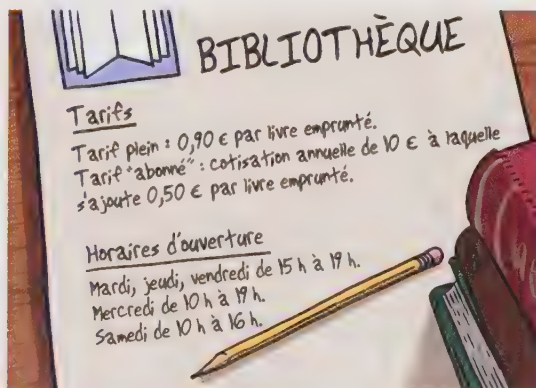 BIBLIOTHÈQUE
Tarifs
Tarif plein : 0,90 € par livre emprunté.
Tarif "abonné" : cotisation annuelle de 10 € à laquelle
s'ajoute 0,50 € par livre emprunté.
Horaires d'ouverture
Mardi, jeudi, vendredi de 15 h à 19 h.
Mercredi de 10 h à 19 h.
Samedi de 10 h à 16 h.